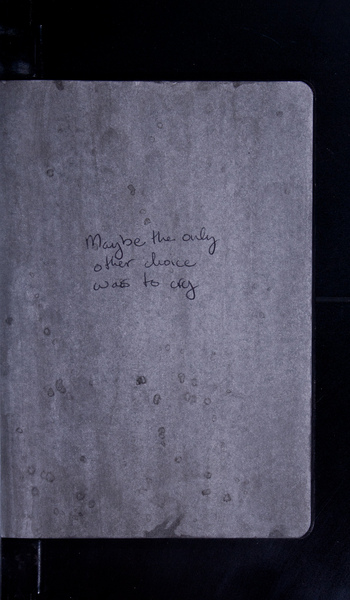 Maybe the only
other choice
was to cry